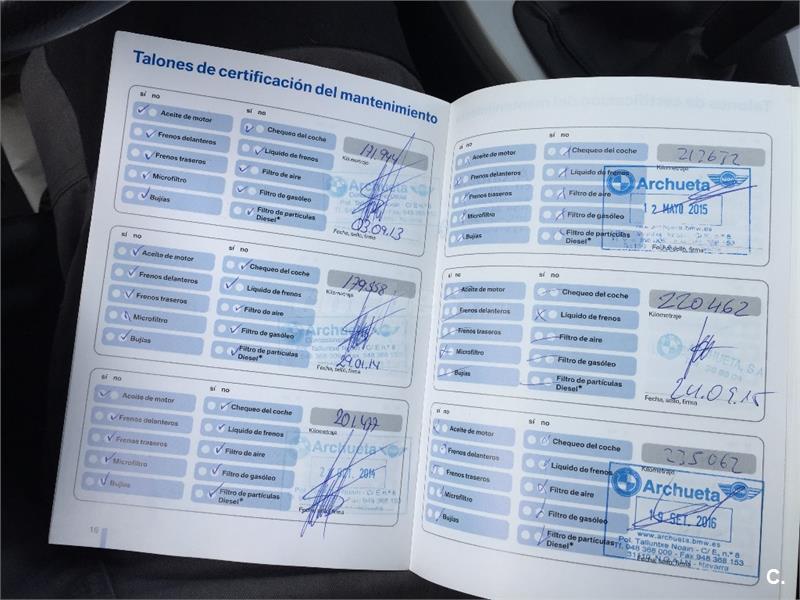 Talones de certificación del mantenimiento
sí no
sí no
Aceite de motor
Frenos delanteros
Frenos traseros
Microfiltro
Bujías
Chequeo del coche
Líquido de frenos
Filtro de aire
Filtro de gasóleo
Filtro de partículas
Diesel*
171.944
Kilometraje
Archueta
03.09.13
Fecha, sello, firma
sí no
sí no
Aceite de motor
Frenos delanteros
Frenos traseros
Microfiltro
Bujías
Chequeo del coche
Líquido de frenos
Filtro de aire
Filtro de gasóleo
Filtro de partículas
Diesel*
179.558
Kilometraje
Archueta
29.01.14
Fecha, sello, firma
sí no
sí no
Aceite de motor
Frenos delanteros
Frenos traseros
Microfiltro
Bujías
Chequeo del coche
Líquido de frenos
Filtro de aire
Filtro de gasóleo
Filtro de partículas
Diesel*
Kilometraje
Archueta
SET. 2014
Fecha, sello, firma
16
sí no
sí no
Aceite de motor
Frenos delanteros
Frenos traseros
Microfiltro
Bujías
Chequeo del coche
Líquido de frenos
Filtro de aire
Filtro de gasóleo
Filtro de partículas
Diesel*
Kilometraje
Archueta
12 MAYO 2015
www.archueta.bmw.es
Fecha, sello, firma
sí no
sí no
Aceite de motor
Frenos delanteros
Frenos traseros
Microfiltro
Bujías
Chequeo del coche
Líquido de frenos
Filtro de aire
Filtro de gasóleo
Filtro de partículas
Diesel*
220462
Kilometraje
ARCHUETA, S.A.
24.09.15
Fecha, sello, firma
sí no
sí no
Aceite de motor
Frenos delanteros
Frenos traseros
Microfiltro
Bujías
Chequeo del coche
Líquido de frenos
Filtro de aire
Filtro de gasóleo
Filtro de partículas
Diesel*
235062
Kilometraje
Archueta
19 SET. 2016
www.archueta.bmw.es
Pol. Talluntxe Noain - C/ E, n.º 8
Tf. 948 368 009 - Fax 948 368 153
Navarra
Fecha, sello, firma
C.